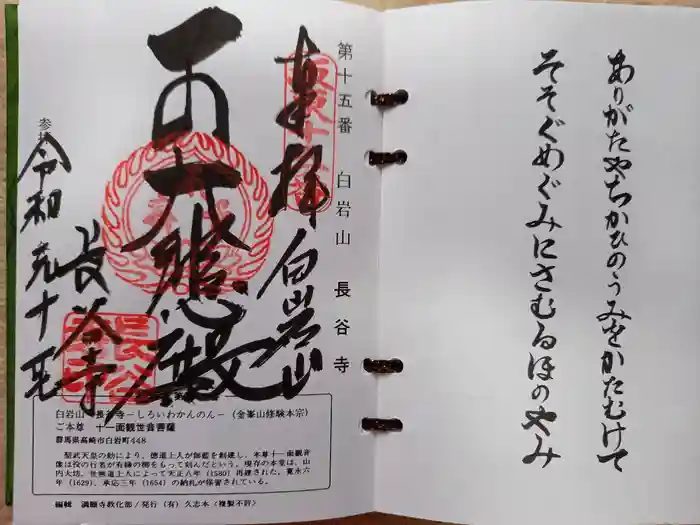 ありがたやちかひのうみをかたむけて
そそぐめぐみにさむるほのやみ
第十五番 白岩山 長谷寺
奉拝 白岩山
大悲殿
長谷寺
令和元年十
白岩山 長谷寺－しろいわかんのん－（金峯山修験本宗）
ご本尊 十一面観世音菩薩
群馬県高崎市白岩町448
聖武天皇の勅により、徳道上人が御堂を創建し、本尊十一面観音
像は役の行者が有縁の柳をもって刻んだという。現存の本堂は、山
内大坊、世無道上人によって天正八年（1580）再建された。寛永六
年（1629）、承応三年（1654）の納札が保管されている。
編輯 満願寺教化部／発行（有）久志本〈複製不許〉